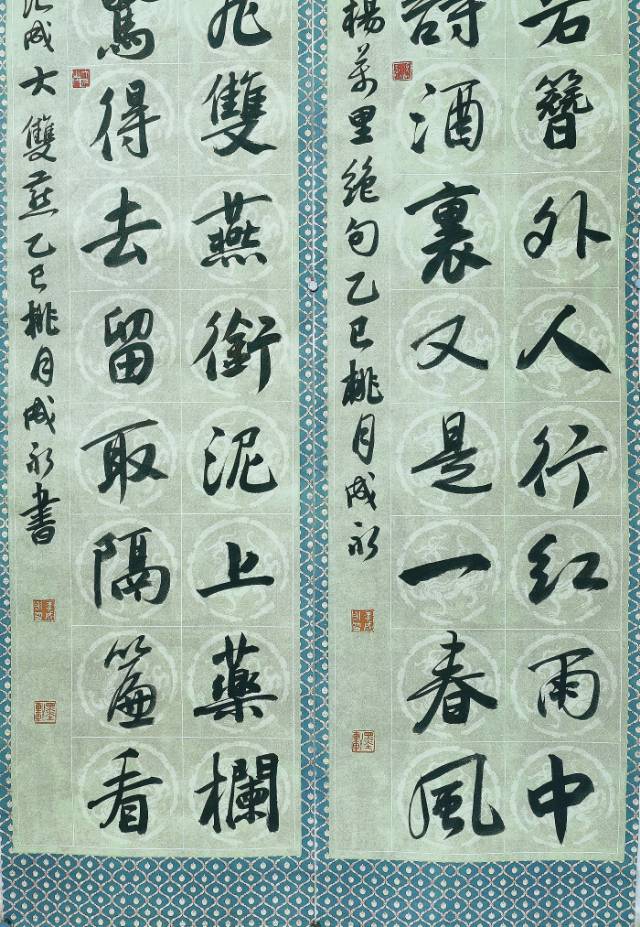 簪外人行红雨中
詩酒裏又是一春風
楊萬里絕句乙巳桃月成永
飛雙燕銜泥上藥欄
驚得去留取隔簾看
范成大雙燕乙巳桃月成永書